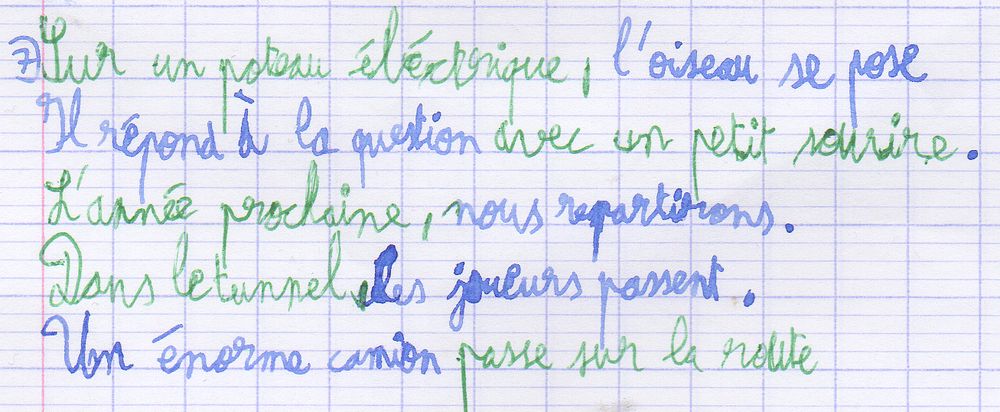 7) Sur un poteau éléctrique, l'oiseau se pose
Il répond à la question avec un petit sourire.
L'année prochaine, nous repartirons.
Dans le tunnel, les joueurs passent.
Un énorme camion passe sur la route